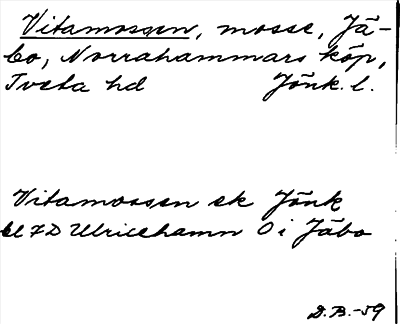 Vitamossen, mosse, Jä-
bo, Norrahammars köp,
Tveta hd Jönk. l.
Vitamossen ek Jönk
bl 7D Ulricehamn O i Jäbo
D.B.-59